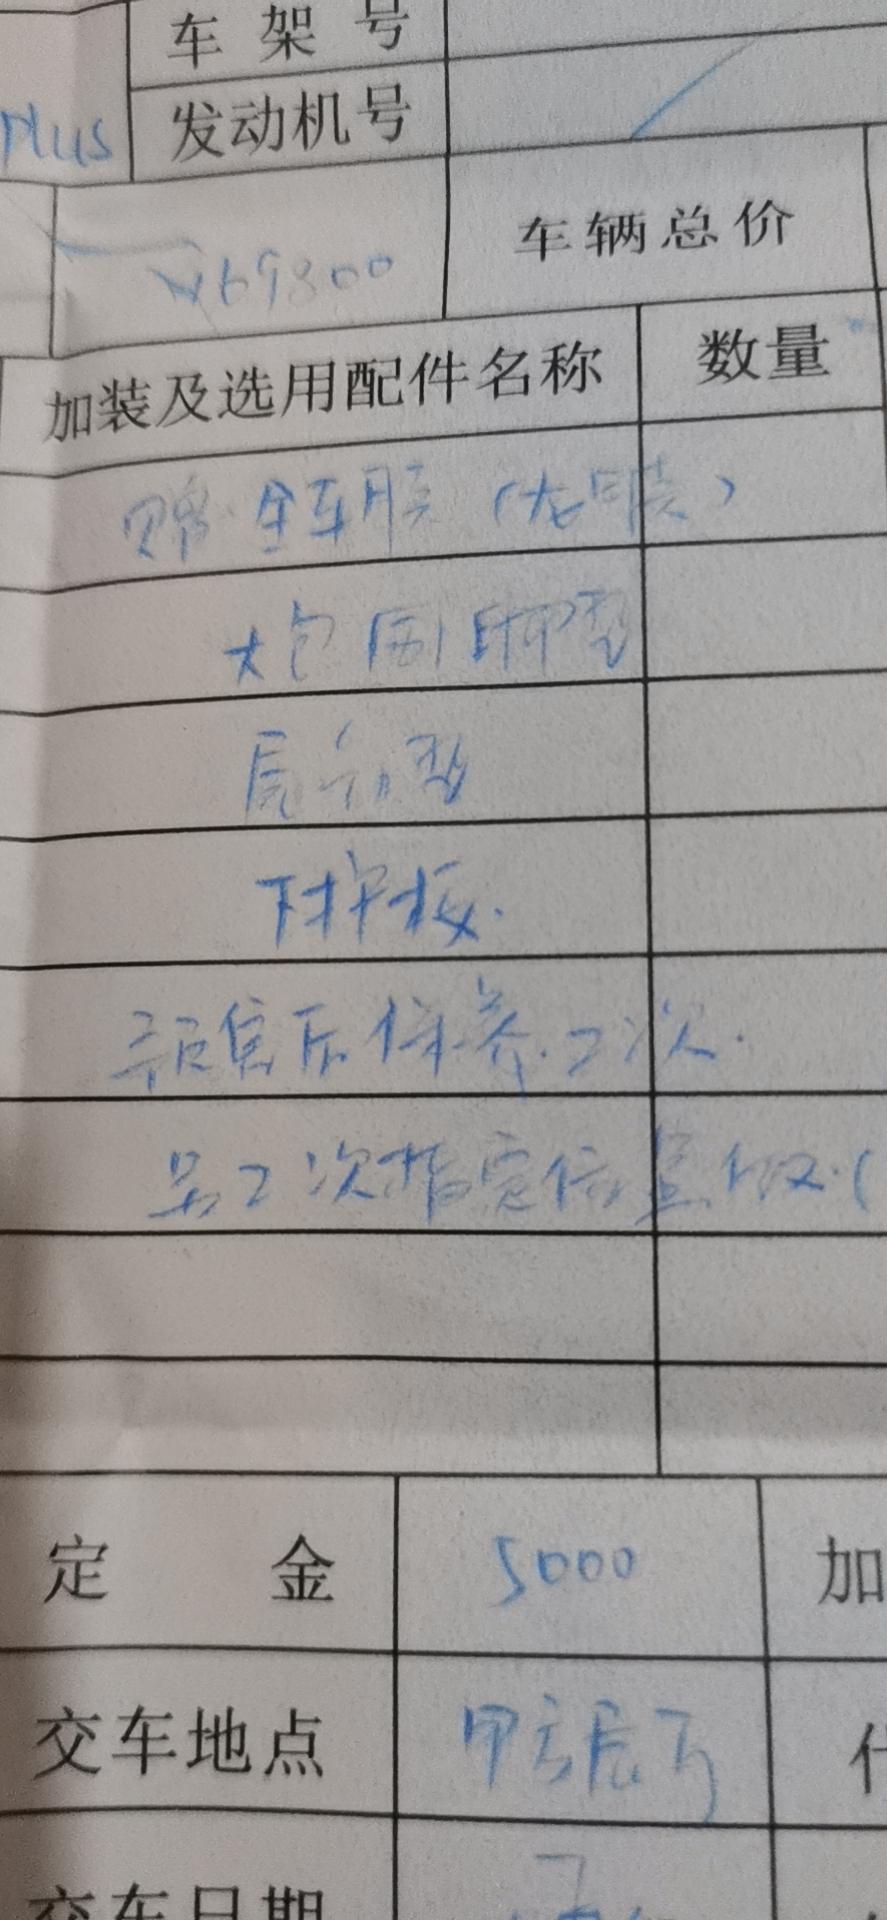 车架号
Plus 发动机号
¥69800 车辆总价
加装及选用配件名称 数量
赠 全车膜（龙膜）
大包围脚垫
后备垫
下护板.
售后保养.2次.
另2次指定位置做.(
定金 5000 加
交车地点 甲方展厅
交车日期